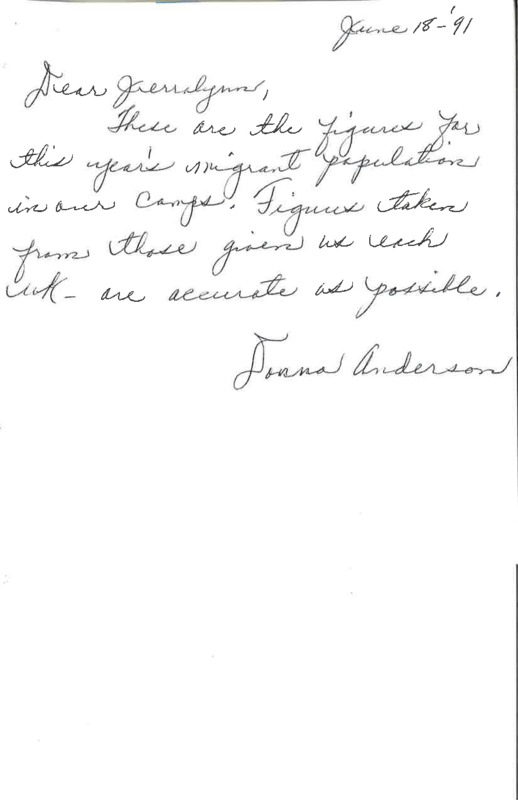 June 18-'91
Dear Jerralynn,
These are the figures for
this year's migrant population
in our Camps. Figures taken
from those given us each
wk- are accurate as possible.
Donna Anderson